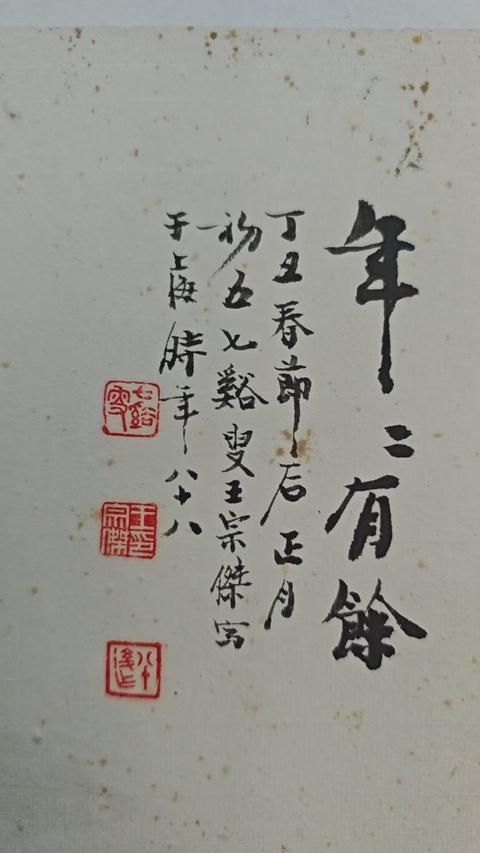 年二有餘
丁丑春節后正月
初五七谿叟王宗傑写
于上海時年八十八
七谿叟
王宗傑印
八十後作